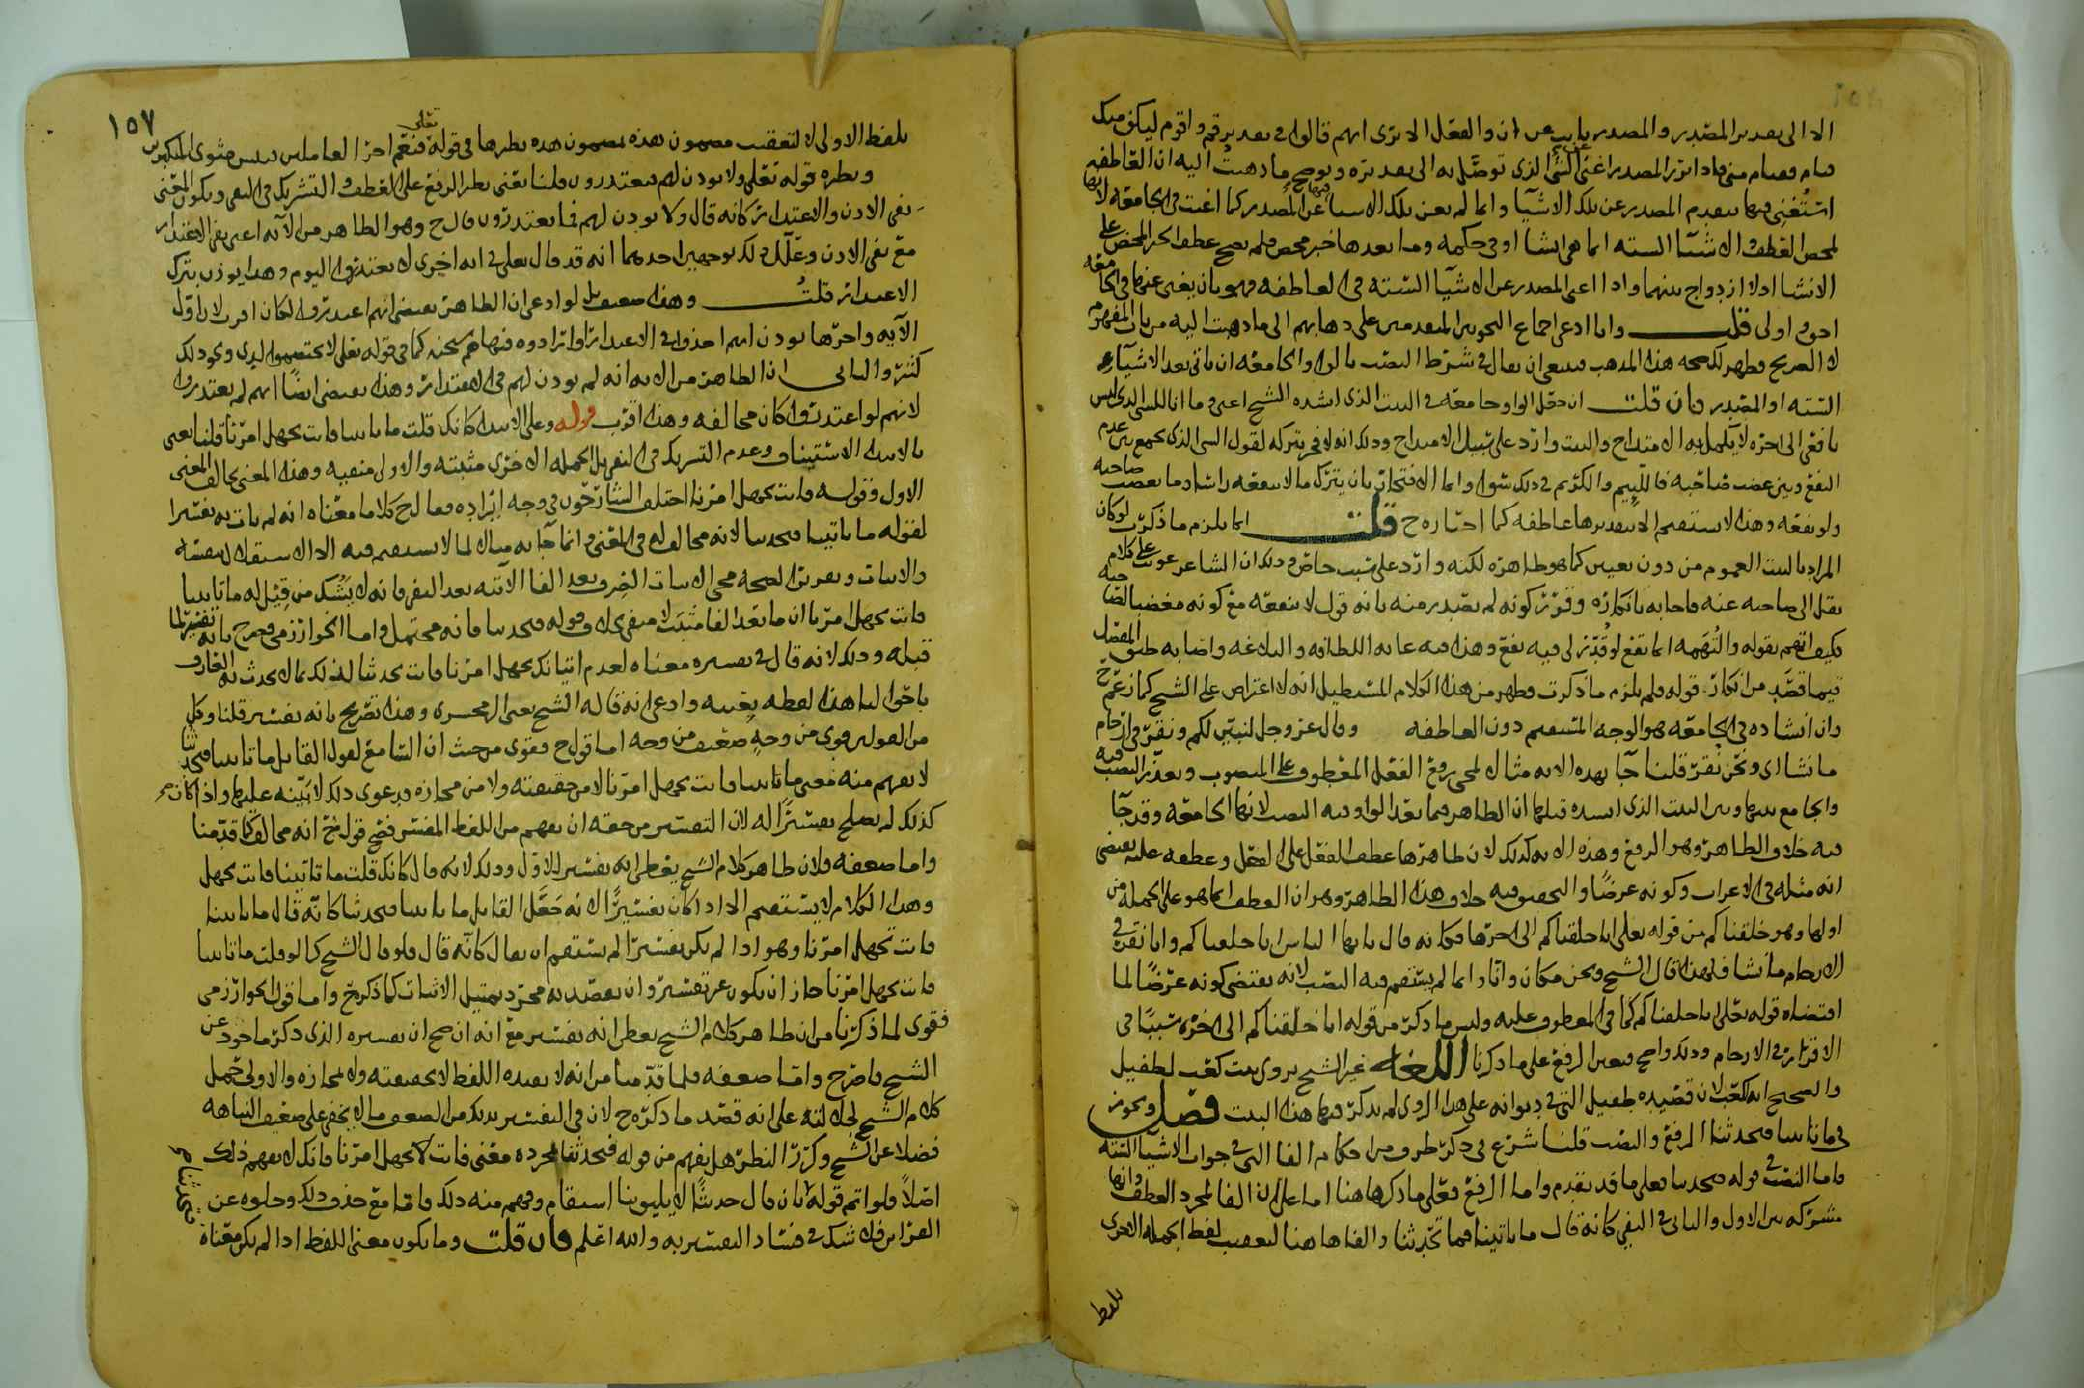 الا الى تقدير المصدر والمصدر ان والفعل الا ترى انهم قالوا في تقدير قم واقوم ليكن منك
قيام وقيام مني فاذا قدر المصدر اغنى عن الشيء الذي توصل به الى تقديره ويوضح ما ذهبت اليه ان العاطفه
استغني فيها بتقدم المصدر عن تلك الاشيا وانما لم يغن تلك الاشيا فيها عن المصدر كما اغنت في الجامعه لانها
لمحض العطف والاشيا السته انما هي انشا او في حكمه وما بعدها خبر محض فلم يصح عطف الخبر المحض على
الانشا اذ لا ازدواج بينهما واذا اغنى المصدر عن الاشيا السته في العاطفه فهو بان يغني عنها في الجامعه
احق واولى قلت واما ادعى اجماع النحويين المتقدمين على ذهابهم الى ما ذهبت اليه من باب المفهوم
لا الصريح فظهر لك صحه هذا المذهب فينبغي ان يقال في شرط النصب بالواو الجامعه ان ياتي بعد الاشياء
السته او المصدر فان قلت ان جعل الواو جامعه في البيت الذي انشده الشيخ اعني وما انا للشي الذي ليس
نافعي الى اخره لا يكمل به الامتداح والبيت وارد على سبيل الامتداح وذلك انه لا فخر بتركه لقول الشي الذي يجمع بين عدم
النفع وبين غضب صاحبه فاللئيم والكريم في ذلك سوا وانما الافتخار بان يترك ما لا ينفعه راسا وما يغضب صاحبه
ولو نفعه وهذا لا يستقيم الا بتقديرها عاطفه كما اختاره ح قلت انما يلزم ما ذكرت لو كان
المراد بالبيت العموم من دون تعيين كما هو ظاهره لكنه وارد على سبب خاص وذلك ان الشاعر عوتب على كلام
نقل الى صاحبه عنه فاجابه بانكاره وقرر كونه لم يصدر منه بانه قول لا ينفعه مع كونه مغضبا لصاحبه
فكيف اتهم بقوله والتهمه انما تقع لو قدر لي فيه نفع وهذا فيه غايه اللطافه والبلاغه واصابه طبق المفصل
فيما قصد من انكار قوله فلم يلزم ما ذكرت وظهر من هذا الكلام المستطيل انه لا اعتراض على الشيخ كما زعم ح
وان انشاده في الجامعه هو الوجه المستقيم دون العاطفه وقال عز وجل لنبين لكم ونقر في الارحام
ما نشا اي ونحن نقر قلنا جا بهذه الايه مثالا لمجي رفع الفعل المعطوف على المنصوب وتعذر النصب فيه
والجامع بينها وبين البيت الذي انشده قبلها ان الظاهر فيما بعد الواو فيه النصب لانها الجامعه وقد جا
فيه خلاف الظاهر وهو الرفع وهذه الايه كذلك لان ظاهرها عطف الفعل على الفعل وعطفه عليه يقتضي
انه مثله في الاعراب وكونه غرضا والتحقيق فيه خلاف هذا الظاهر وهو ان العطف انما هو على الجمله من
اولها وهو خلقناكم من قوله تعالى انا خلقناكم الى اخرها فكانه قال يا ايها الناس انا خلقناكم وانا نقر في
الارحام ما نشا فلهذا قال الشيخ ونحن مكان وانا وانما لم يستقم فيه النصب لانه يقتضي كونه غرضا لما
اقتضاه قوله تعالى انا خلقناكم كما في المعطوف عليه وليس ما ذكر من قوله انا خلقناكم الى اخره سببا في
الاقرار في الارحام وذلك واضح فتعين الرفع على ما ذكرنا اللغه غير الشيخ يروي بيت كعب لطفيل
والصحيح انه لكعب لان قصيده طفيل التي في ديوانه على هذا الروي لم يذكر فيها هذا البيت فصل ويجوز
في ما تاتينا فتحدثنا الرفع والنصب قلنا شرع في ذكر طرف من احكام الفا التي في جواب الاشيا السته
فاما النصب في قوله فتحدثنا فعلى ما قد تقدم واما الرفع فعلى ما ذكرها هنا اما على ان الفا لمجرد العطف وانها
مشركه بين الاول والثاني في النفي كانه قال ما تاتينا فما تحدثنا والفا ها هنا لتعقيب لفظ الجمله الاخرى
بلفظ
١٥٧
بلفظ الاولى لا لتعقيب مضمون هذه بمضمون هذه نظيرها في قوله تعالى فنعم اجر العاملين فبئس مثوى المتكبرين
ونظيره قوله تعالى ولا يوذن لهم فيعتذرون قلنا يعني نظير الرفع على العطف والتشريك في النفي ويكون المعنى
نفي الاذن والاعتذار كانه قال ولا يوذن لهم فما يعتذرون قال ح وهو الظاهر من الايه اعني نفي الاعتذار
مع نفي الاذن وعلل ذلك بوجهين احدهما انه قد قال تعالى في ايه اخرى لا تعتذروا اليوم وهذا يوذن بترك
الاعتذار قلت وهذا ضعيف بل لو ادعى ان الظاهر يقتضي انهم اعتذروا لكان اقرب لان اول
الايه واخرها يوذن انهم اخذوا في الاعتذار وارادوه فنهاهم عنه كما في قوله تعالى لا تختصموا لدي ونحو ذلك
كثير والثاني ان الظاهر من الايه انه لم يوذن لهم في الاعتذار وهذا يقتضي ايضا انهم لم يعتذروا
لانهم لو اعتذروا كان مخالفه وهذا اقرب قوله وعلى الابتدا كانك قلت ما تاتينا فانت تجهل امرنا قلنا يعني
بالابتدا الاستيناف وعدم التشريك في النفي بل الجمله الاخرى مثبته والاولى منفيه وهذا المعنى يخالف المعنى
الاول وقوله فانت تجهل امرنا اختلف الشارحون في وجه ايراده فقال ح كلاما معناه انه لم يات به تفسيرا
لقوله ما تاتينا فتحدثنا لانه مخالف له في المعنى وانما جا به مثالا لما لا يستقيم فيه الا الاستقلال بنفسه
والاثبات وتعريفا لصحه مجي الاثبات الصرف بعد الفا الاتيه بعد النفي فانه لا يشك من قيل له ما تاتينا
فانت تجهل امرنا ان ما بعد الفا مثبت لا منفي بخلاف قوله فتحدثنا فانه محتمل واما الخوارزمي فصرح بانه تفسير لما
قبله وذلك لانه قال في تفسيره معناه لعدم اتيانك تجهل امرنا فانت تحدثنا لذلك بما لا يحدث به العارف
باحوالنا هذا لفظه بعينه وادعى انه قاله الشيخ يعني الزمخشري وهذا تصريح بانه تفسير قلنا وكل
من القولين قوي من وجه ضعيف من وجه اما قول ح فقوي من حيث ان السامع لقول القايل ما تاتينا فتحدثنا
لا يفهم منه معنى ما تاتينا فانت تجهل امرنا لا من حقيقته ولا من مجازه ودعوى ذلك لا بينه عليها واذا كان
كذلك لم يصلح تفسيرا له لان التفسير من حقه ان يفهم من اللفظ المفسر فصح قول ح انه مخالف كما قدمنا
واما ضعفه فلان ظاهر كلام الشيخ يعطي انه تفسير للاول وذلك لانه قال كانك قلت ما تاتينا فانت تجهل
وهذا الكلام لا يستقيم الا اذا كان تفسيرا لانه جعل القايل ما تاتينا فتحدثنا كانه قال ما تاتينا
فانت تجهل امرنا وهو اذا لم يكن تفسيرا لم يستقم ان يقال كانه قال ولو قال الشيخ كما لو قلت ما تاتينا
فانت تجهل امرنا جاز ان يكون غير تفسير وان يقصد به مجرد تمثيل الاثبات كما ذكر ح واما قول الخوارزمي
فقوي لما ذكرنا من ان ظاهر كلام الشيخ يعطي انه تفسير مع انه ان صح ان تفسيره الذي ذكر ماخوذ عن
الشيخ فاصرح واما ضعفه فلما قدمنا من انه لا يفيده اللفظ لا بحقيقته ولا بمجازه والاولى حمل
كلام الشيخ لجلالته على انه قصد ما ذكره ح لان في التفسير بذلك من الضعف ما لا يخفى على ضعيف النباهه
فضلا عن الشيخ وكرر النظر هل يفهم من قوله فتحدثنا بمجرده معنى فانت تجهل امرنا فانك لا تفهم ذلك
اصلا فلو اتم قوله بان قال حديثا لا يليق بنا استقام وفهم منه ذلك فاما مع حذف ذلك وخلوه عن
القراين فلا شك في فساد التفسير به والله اعلم فان قلت وما يكون معنى اللفظ اذا لم يكن معناه